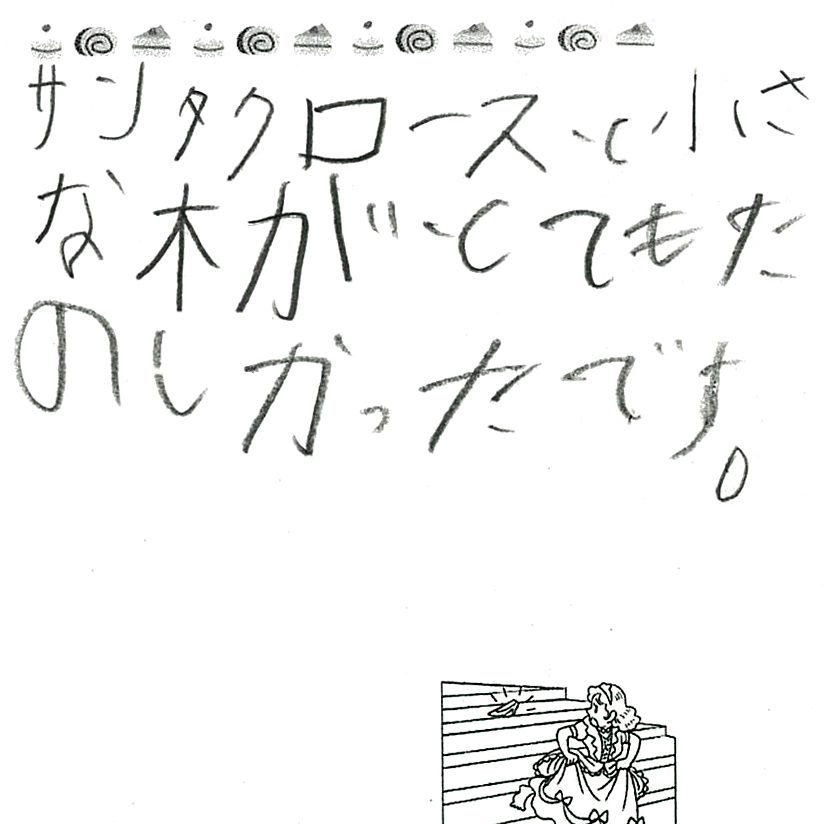 サンタクロースと小さ
な木が、とてもた
のしかったです。